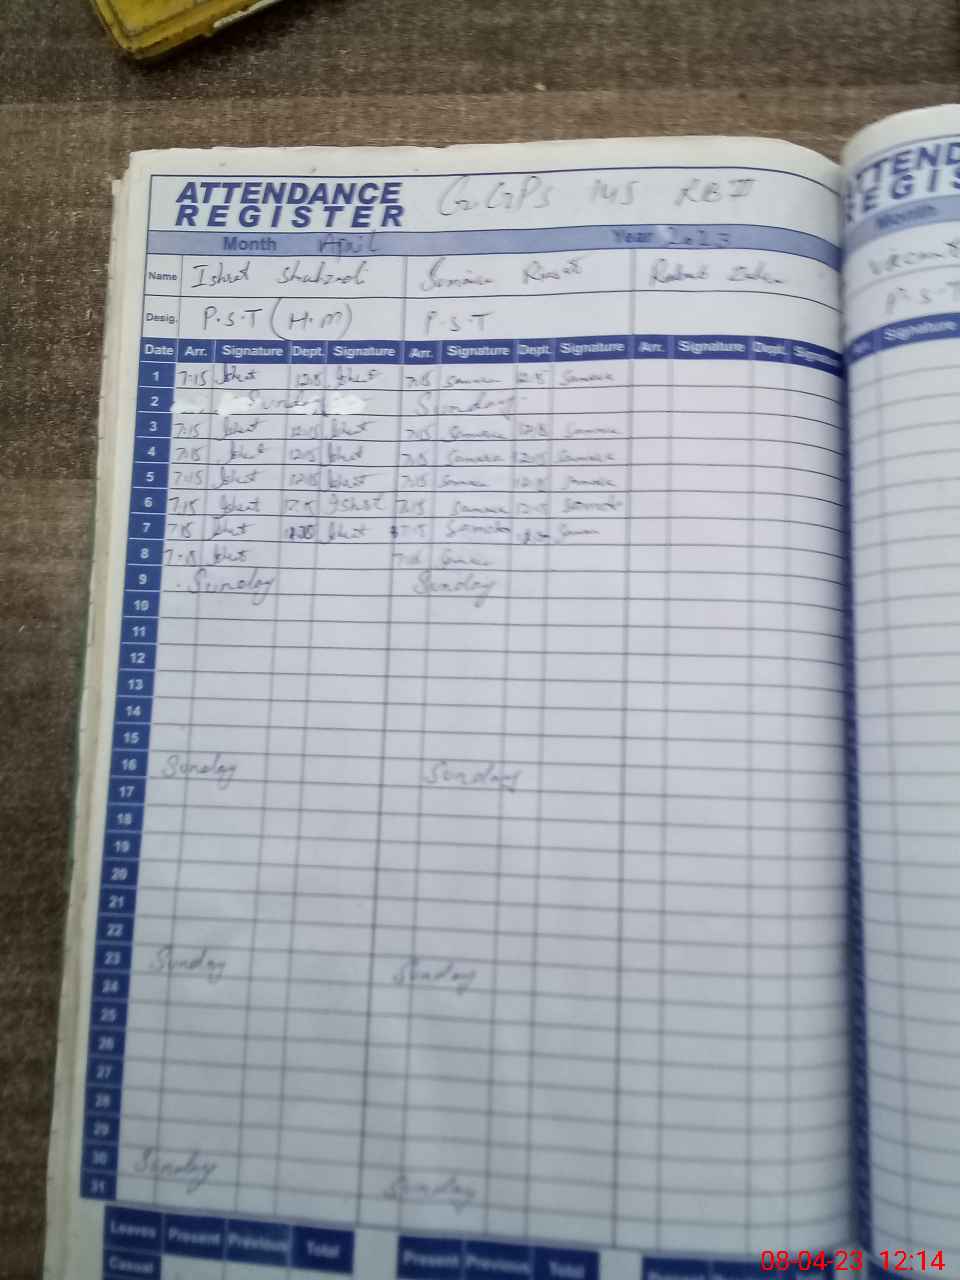 ATTENDANCE
REGISTER
GGPS 145 RB II
Month April Year 2023
Name Ishrat Shahzadi
Desig. P.S.T (H.M) P.S.T
Date Arr. Signature Dept. Signature Arr. Signature Dept. Signature Arr. Signature Dept. Signature
1 7:15 Ishrat 12:15 Ishrat 7:15 12:15
2 Sunday Sunday
3 7:15 Ishrat 12:15 Ishrat 7:15 12:15
4 7:15 Ishrat 12:15 Ishrat 7:15 12:15
5 7:15 Ishrat 12:15 Ishrat 7:15 12:15
6 7:15 Ishrat 12:15 Ishrat 7:15 12:15
7 7:15 Ishrat Ishrat 7:15
8 7:15 Ishrat 7:15
9 Sunday Sunday
10
11
12
13
14
15
16 Sunday Sunday
17
18
19
20
21
22
23 Sunday Sunday
24
25
26
27
28
29
30 Sunday Sunday
31
Leaves Present Previous Total Present Previous Total
Casual
ATTEND
REGIS
Month
P.S.T
Signature
08-04-23 12:14